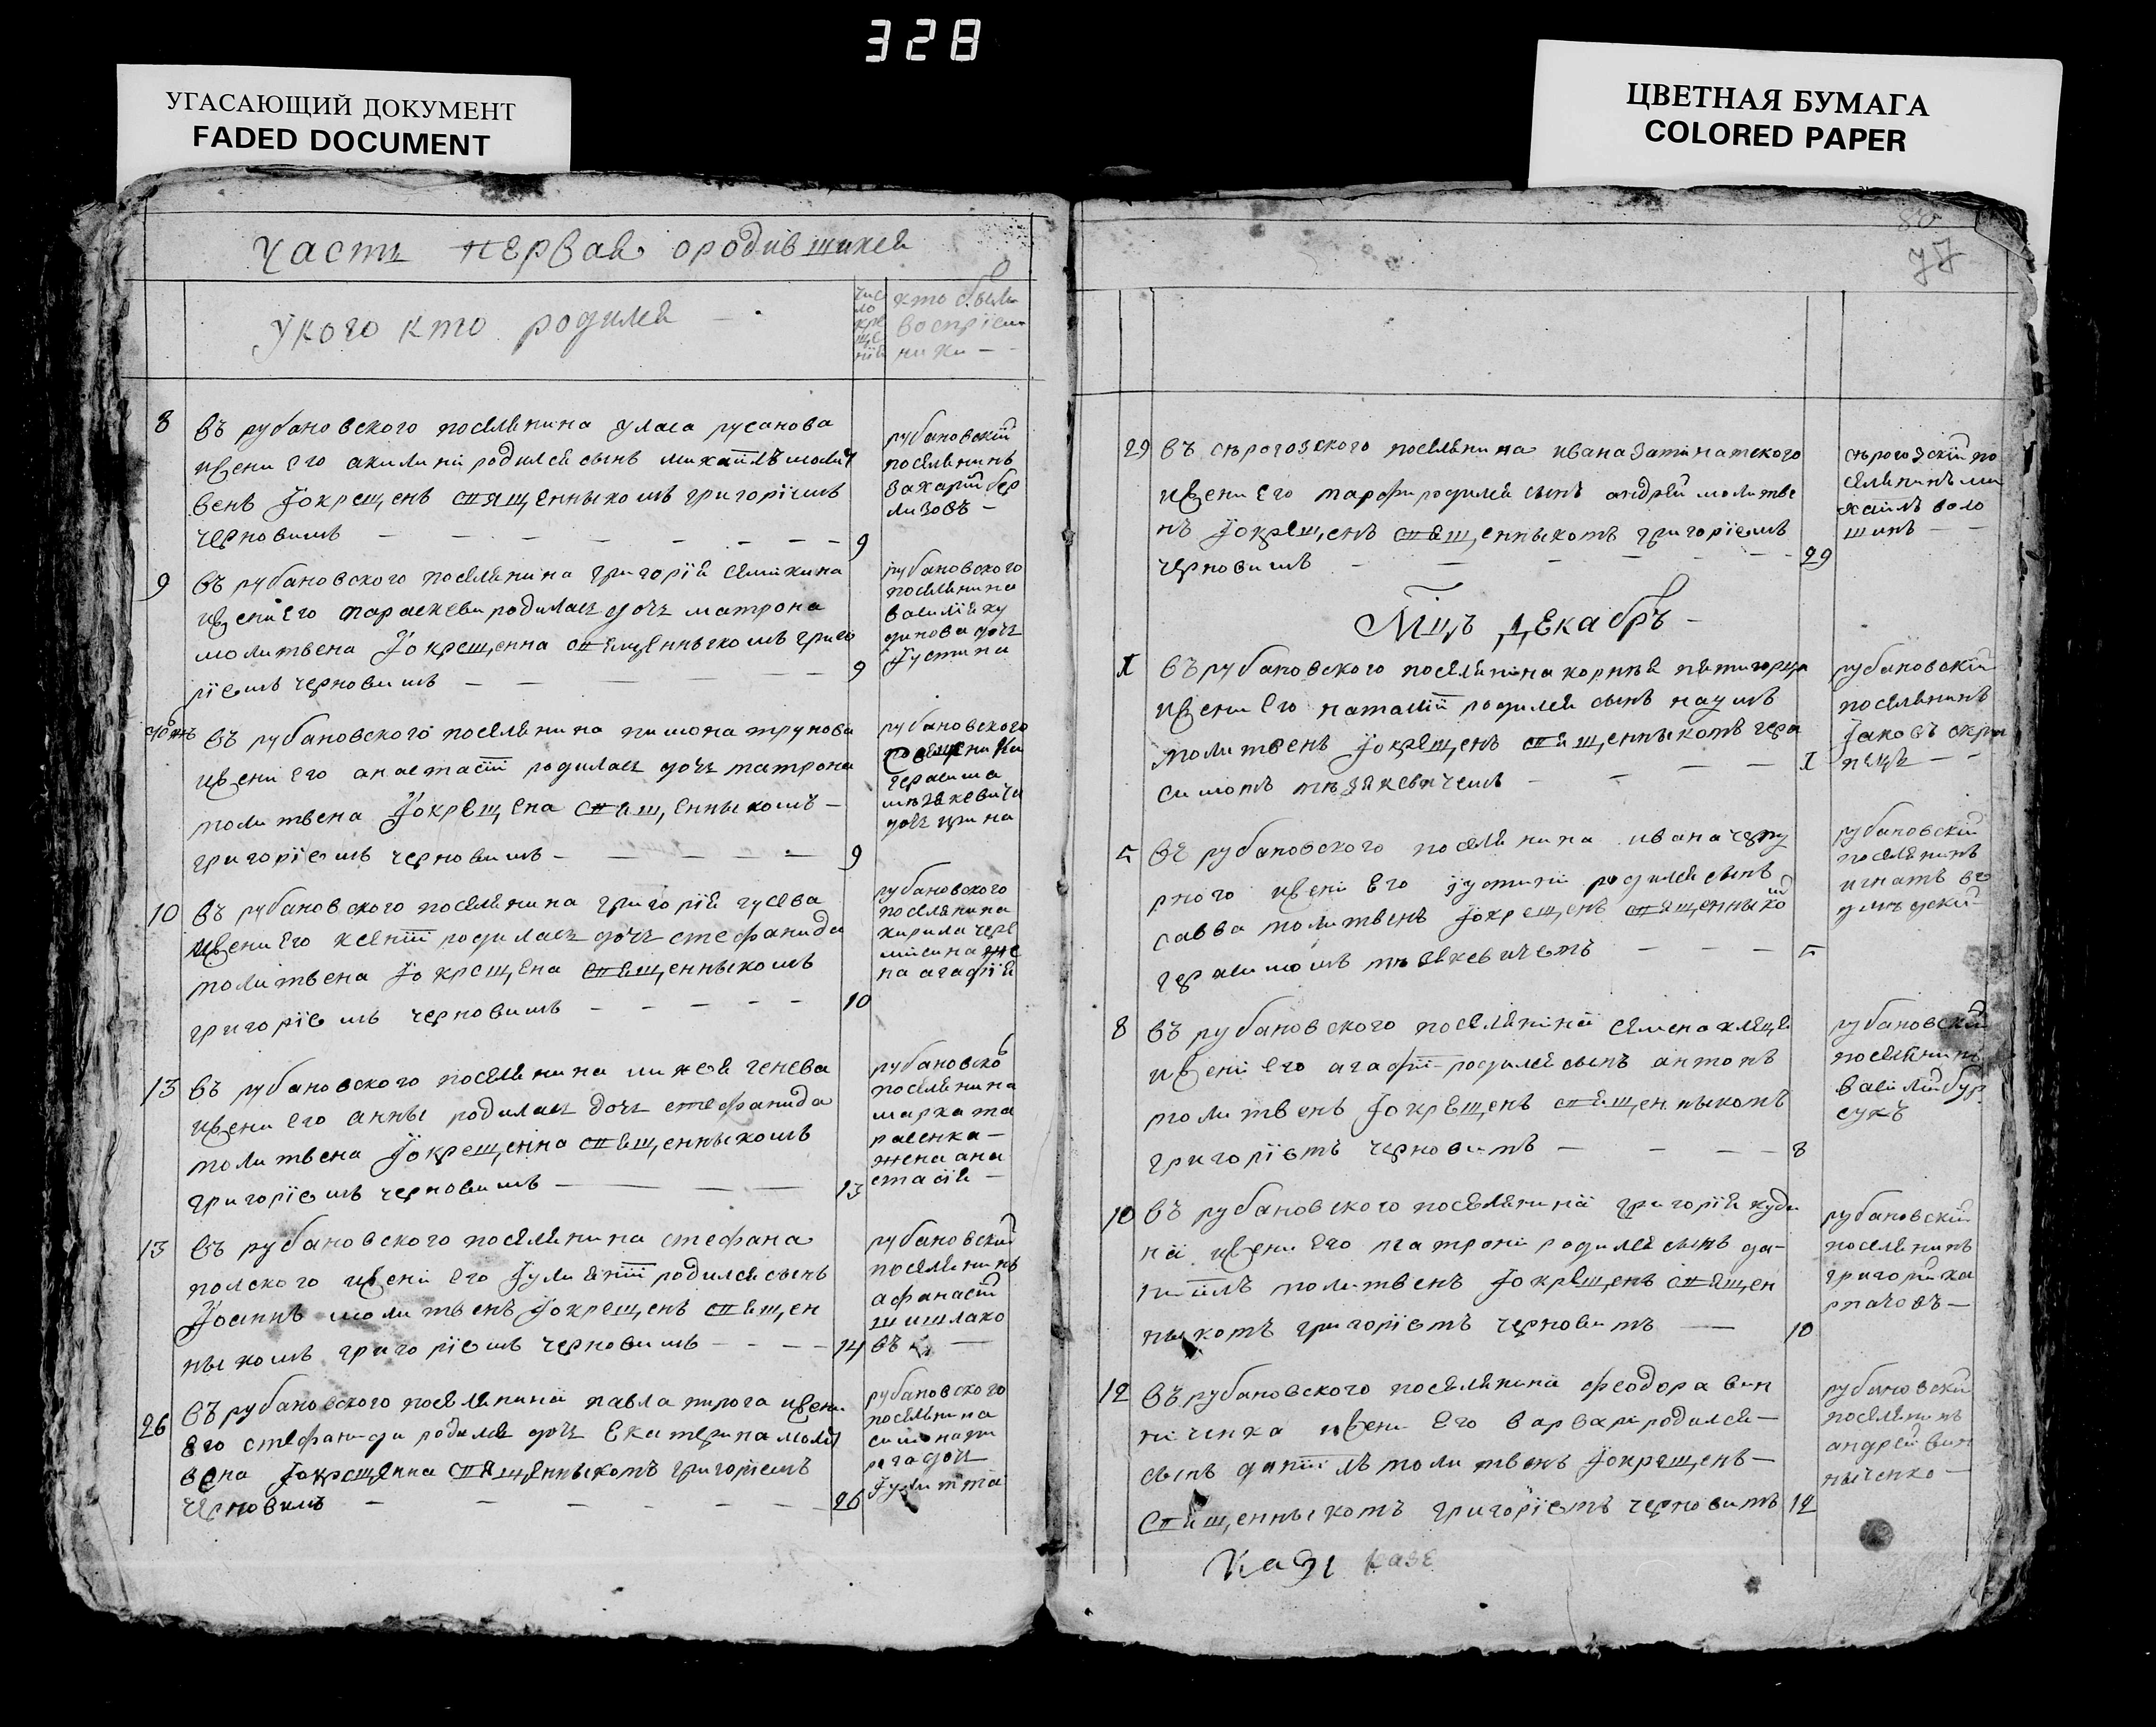 328
УГАСАЮЩИЙ ДОКУМЕНТ
FADED DOCUMENT
ЦВЕТНАЯ БУМАГА
COLORED PAPER
часть первая ородившихся
Укого кто родился
чис
ло
кре
ще
нiя
кто были
воспрiем
ники
8
въ рубановского поселянина уласа русанова
ижени его акилини родился сынъ михаилъ молит
венъ Iокрещенъ священникомъ григорiемъ
черновимъ
9
рубановскiй
поселянинъ
захарiй бер
лизовъ
9
въ рубановского поселянина григорiя семикина
ижени его параскеви родилась дочь матрона
молитвена Iокрещенна священникомъ григо
рiемъ черновимъ
9
рубановского
поселянина
василiя ку
динова дочь
Iустина
въ рубановского поселянина пимона трунова
ижени его анастасiи родилась дочь матрона
молитвена Iокрещена священникомъ
григорiемъ черновимъ
9
рубановского
герасима
дочь ирина
10
въ рубановского поселянина григорiя гусева
ижени его ксенiи родилась дочь стефанида
молитвена Iокрещена священникомъ
григорiемъ черновимъ
10
рубановского
поселянина
кирила чере
мисина же
на агафiя
13
въ рубановского поселянина генева
ижени его анны родилась дочь стефанида
молитвена Iокрещенна священникомъ
григорiемъ черновимъ
13
рубановско
поселянина
марка та
расенка
жена ана
стасiя
13
въ рубановского поселянина стефана
полского ижени его Iулиянiи родился сынъ
Iоаннъ молитвенъ Iокрещенъ священ
никомъ григорiемъ черновимъ
14
рубановский
поселянинъ
афанасiй
шишлако
въ
26
въ рубановского поселянина павла пирога ижени
его стефаниди родилася дочь Екатерина молит
вена Iокрещенна священникомъ григорiемъ
черновимъ
26
рубановского
поселянина
симона пи
рога дочь
Iулитта
80
77
29
въ сѣрогозского поселянина ивана
ижени его родился сынъ андрей молитве
нъ Iокрещенъ священникомъ григорiемъ
черновимъ
29
сѣрогозскiй по
селянинъ ми
хаилъ воло
шинъ
Мцъ декабрь
1
въ рубановского поселянина корнѣя пятигорца
ижени его наталiи родился сынъ наумъ
молитвенъ Iокрещенъ священникомъ гера
симомъ
1
рубановскiй
поселянинъ
Iаковъ скри
пецъ
5
въ рубановского поселянина ивана черну
рного ижени его iустини родился сынъ
савва молитвенъ Iокрещенъ священнико
герасимомъ
5
рубановскiй
поселянинъ
игнатъ
8
въ рубановского поселянина семена клеща
ижени его агафiи родился сынъ антонъ
молитвенъ Iокрещенъ священникомъ
григорiемъ черновимъ
8
рубановскiй
поселянинъ
василiй бур
сукъ
10
въ рубановского поселянина григорiя куди
на ижени его матрони родился сынъ да
нiилъ молитвенъ Iокрещенъ священ
никомъ григорiемъ черновимъ
10
рубановскiй
поселянинъ
григорiй ка
рпачовъ
12
въ рубановского поселянина феодора вин
ниченка ижени его варвари родился
сынъ данiилъ молитвенъ Iокрещенъ
священникомъ григорiемъ черновимъ
12
рубановскiй
поселянинъ
андрей вин
ниченко